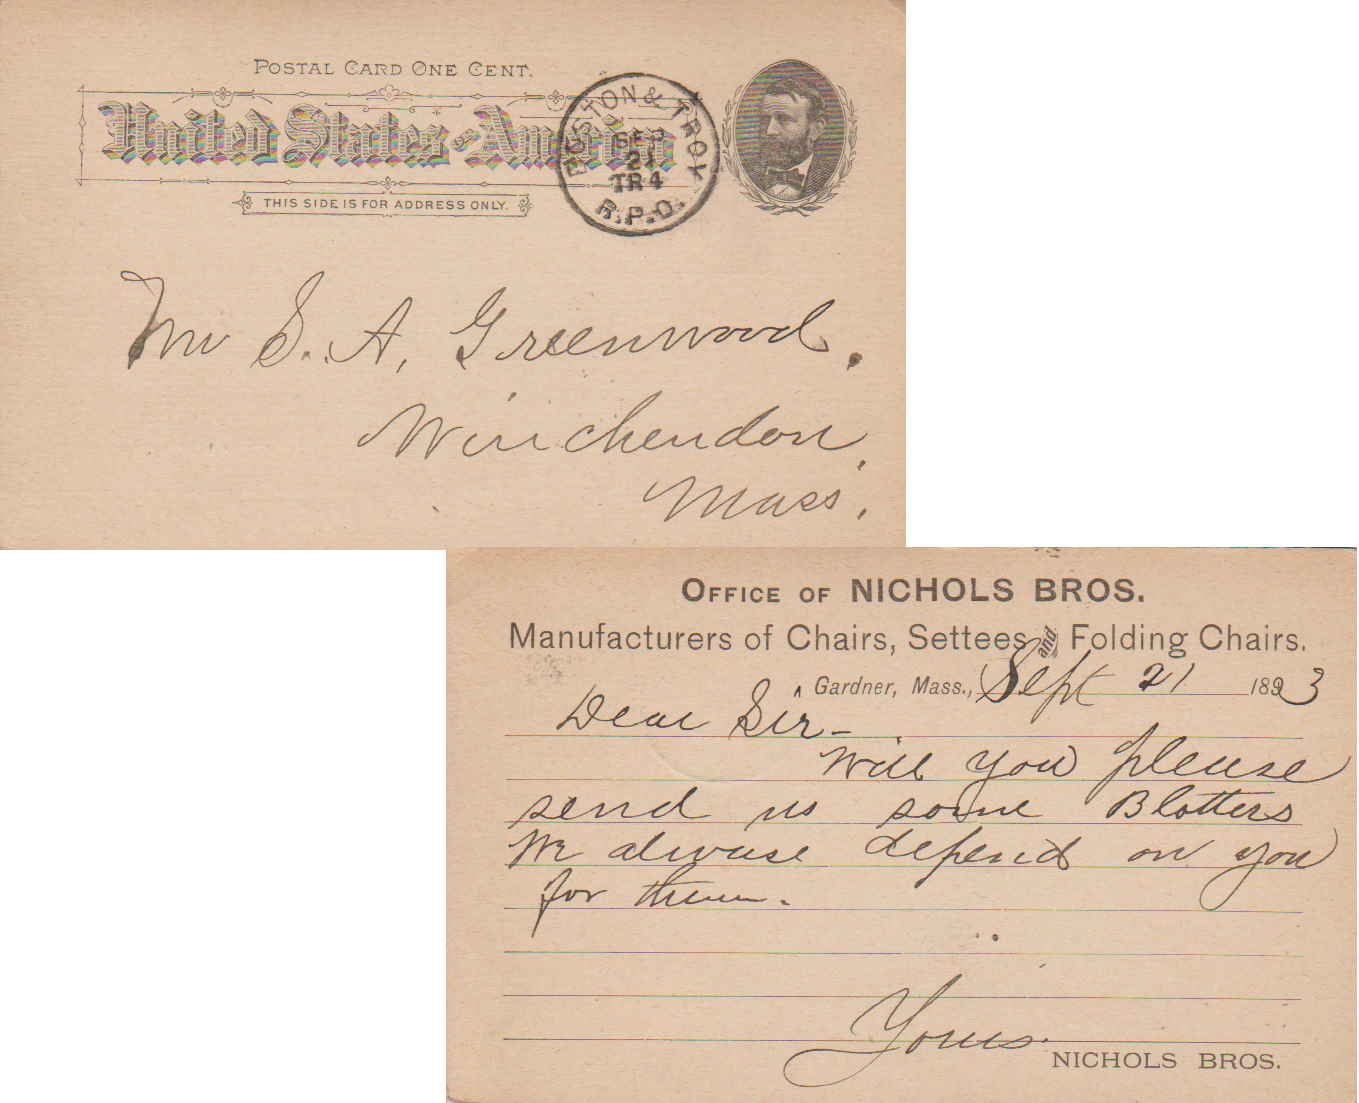 POSTAL CARD ONE CENT.
United States of America
THIS SIDE IS FOR ADDRESS ONLY.
BOSTON & TROY
SEP
21
TR 4
R.P.O.
Mr S. A. Greenwood.
Winchendon,
Mass.
OFFICE OF NICHOLS BROS.
Manufacturers of Chairs, Settees and Folding Chairs.
Gardner, Mass., Sept 21 1893
Dear Sir-
Will you please
send us some Blotters
We alwase depend on you
for them.
Yours.
NICHOLS BROS.